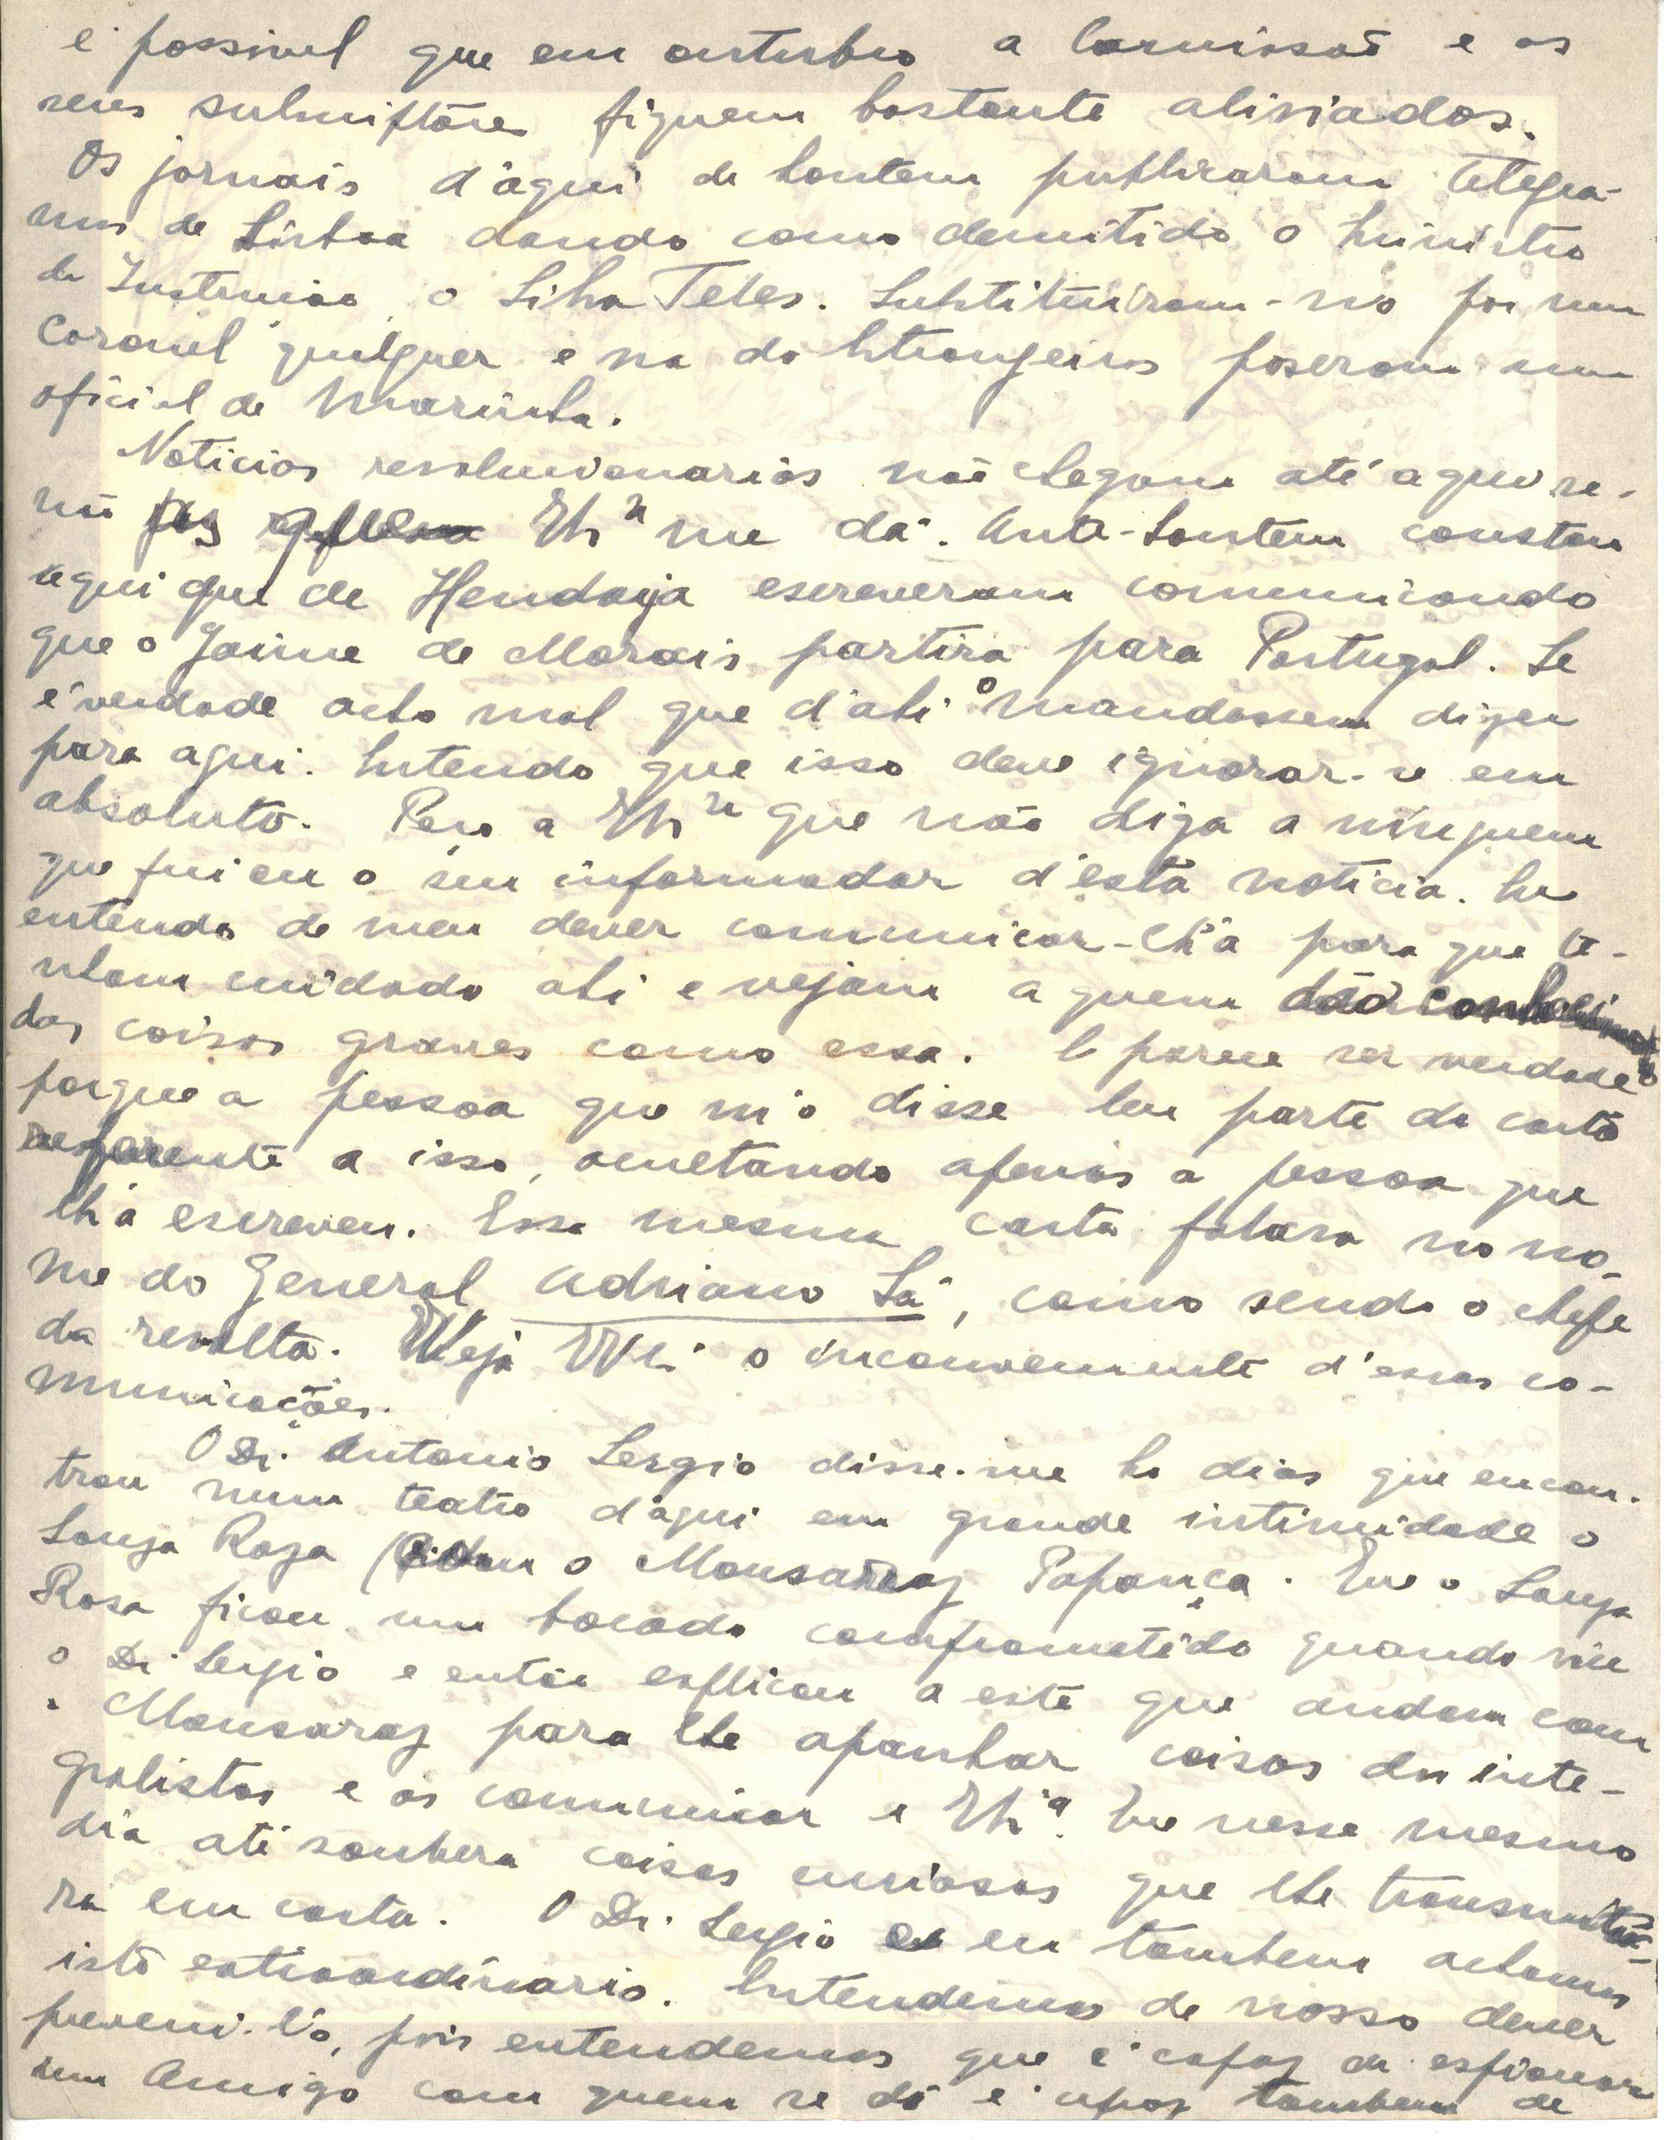 é possivel que em outubro a Comissão e os
seus submissões fiquem bastante aliviados.
Os jornais d'aqui de hontem publicaram telegra-
mas de Lisboa dando como demitido o Ministro
da Instrução, o Silva Teles. Substituiram-no por um
Coronel qualquer e na do Estrangeiros poseram um
oficial de Marinha.
Noticias revolucionarias não chegam até aqui se
não me dá. Ante-hontem constou
aqui que de Hendaya escreveram comunicando
que o Jaime de Morais partira para Portugal. Se
é verdade acho mal que d'ahi o mandassem dizer
para aqui. Entendo que isso deve ignorar-se em
absoluto. Peço a que não diga a ninguem
que fui eu o seu informador d'esta noticia. Eu
entendo de meu dever comunicar-lh'a para que te-
nham cuidado ahi e vejam a quem dão
das coisas graves como essa. E parece ser verdade
porque a pessoa que m'o disse leu parte da carta
referente a isso, ocultando apenas a pessoa que
lh'a escreveu. Essa mesma carta falava no no-
me do General Adriano Sá, como sendo o chefe
da revolta. Veja o inconveniente d'essas co-
municações.
O Dr. Antonio Sergio disse-me ha dias que encon-
trou num teatro d'aqui em grande intimidade o
Souza Roza o Monsaraz Papança. Que o Souza
Rosa ficou um bocado comprometido quando viu
o Dr. Sergio e então esplicou a este que andava com
o Monsaraz para lhe apanhar coisas dos inte-
gralistas e as comunicar a Que nesse mesmo
dia até soubera coisas curiosas que lhe transmiti-
ra em carta. O Dr. Sergio e eu tambem achamos
isto extraordinario. Entendemos de nosso dever
preveni-l'o, pois entendemos que é capaz de espionar
um Amigo com quem se dá é capaz tambem de